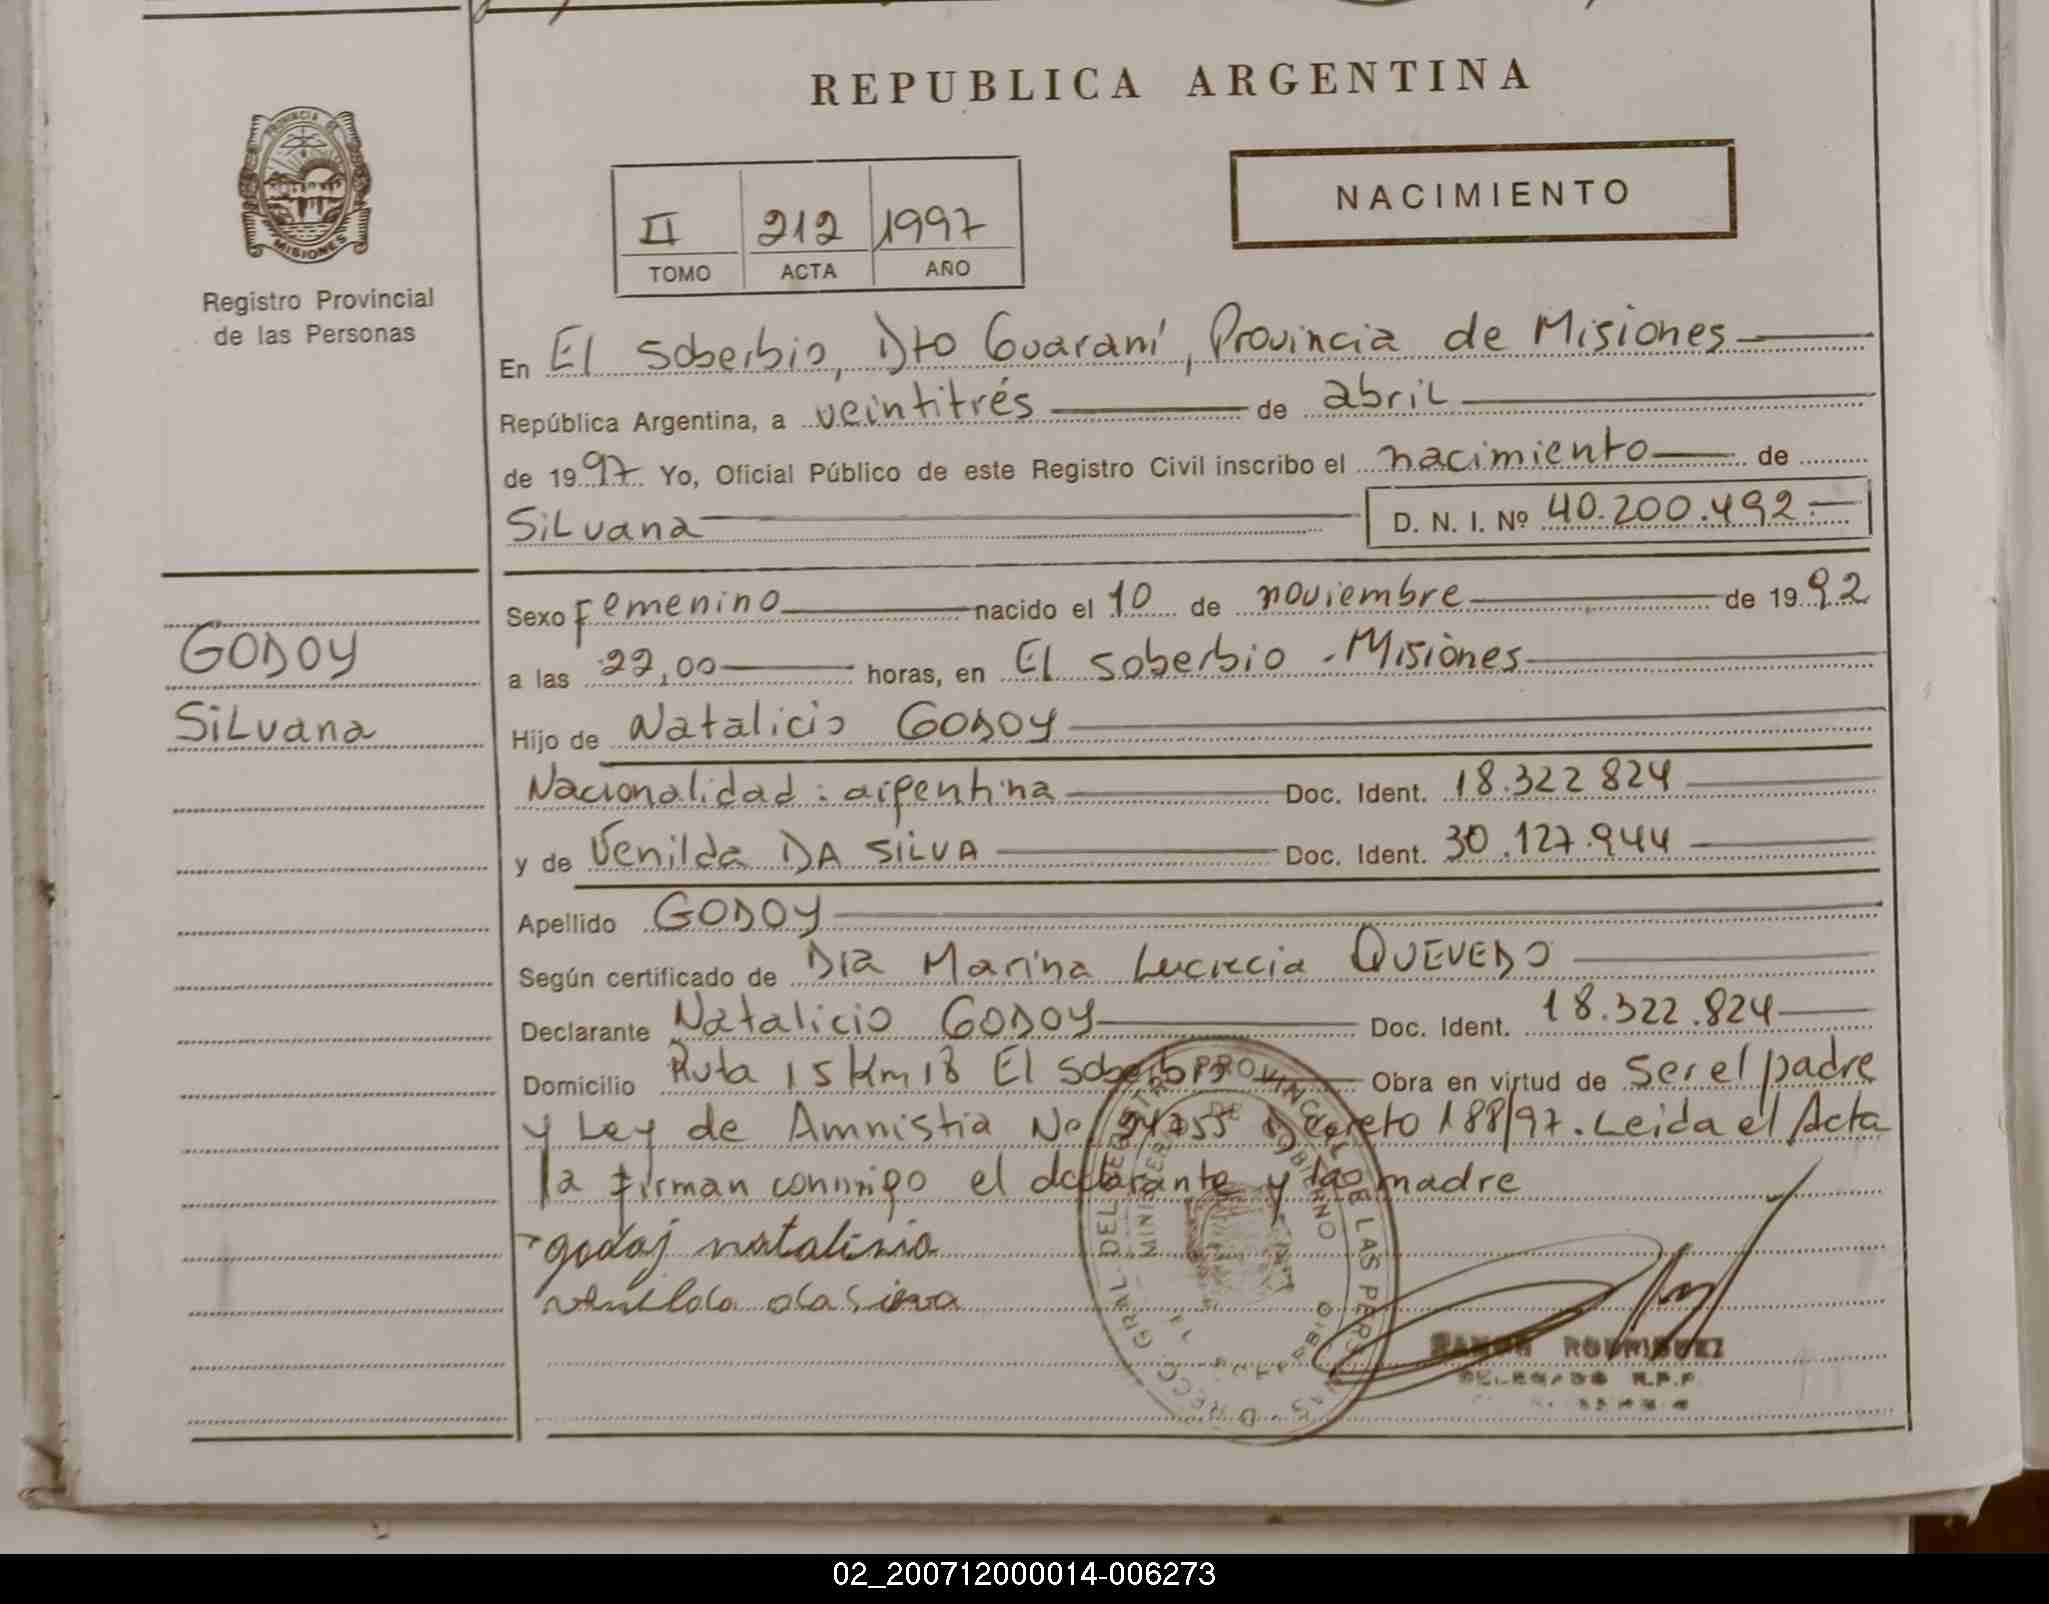 REPUBLICA ARGENTINA
PROVINCIA DE
MISIONES
Registro Provincial
de las Personas
NACIMIENTO
II 212 1997
TOMO ACTA AÑO
En El Soberbio, Dto Guaraní, Provincia de Misiones
República Argentina, a veintitrés de abril
de 1997 Yo, Oficial Público de este Registro Civil inscribo el nacimiento de
Silvana D. N. I. Nº 40.200.492.-
GODOY
Silvana
Sexo Femenino nacido el 10 de noviembre de 1992
a las 22,00 horas, en El Soberbio - Misiones
Hijo de Natalicio GODOY
Nacionalidad: argentina Doc. Ident. 18.322 824
y de Venilda DA SILVA Doc. Ident. 30.127.944
Apellido GODOY
Según certificado de Dra Marina Lucrecia QUEVEDO
Declarante Natalicio GODOY Doc. Ident. 18.322.824
Domicilio Ruta 15 Km 18 El Soberbio Obra en virtud de ser el padre
y Ley de Amnistia No 24755 Decreto 188/97. Leida el Acta
la firman conmigo el declarante y la madre
godoj natalisio
venilda da silva
DIRECC. GRAL. DEL REGISTRO PROVINCIAL DE LAS PERSONAS
RAMON RODRIGUEZ
DELEGADO R.P.P.
02_200712000014-006273